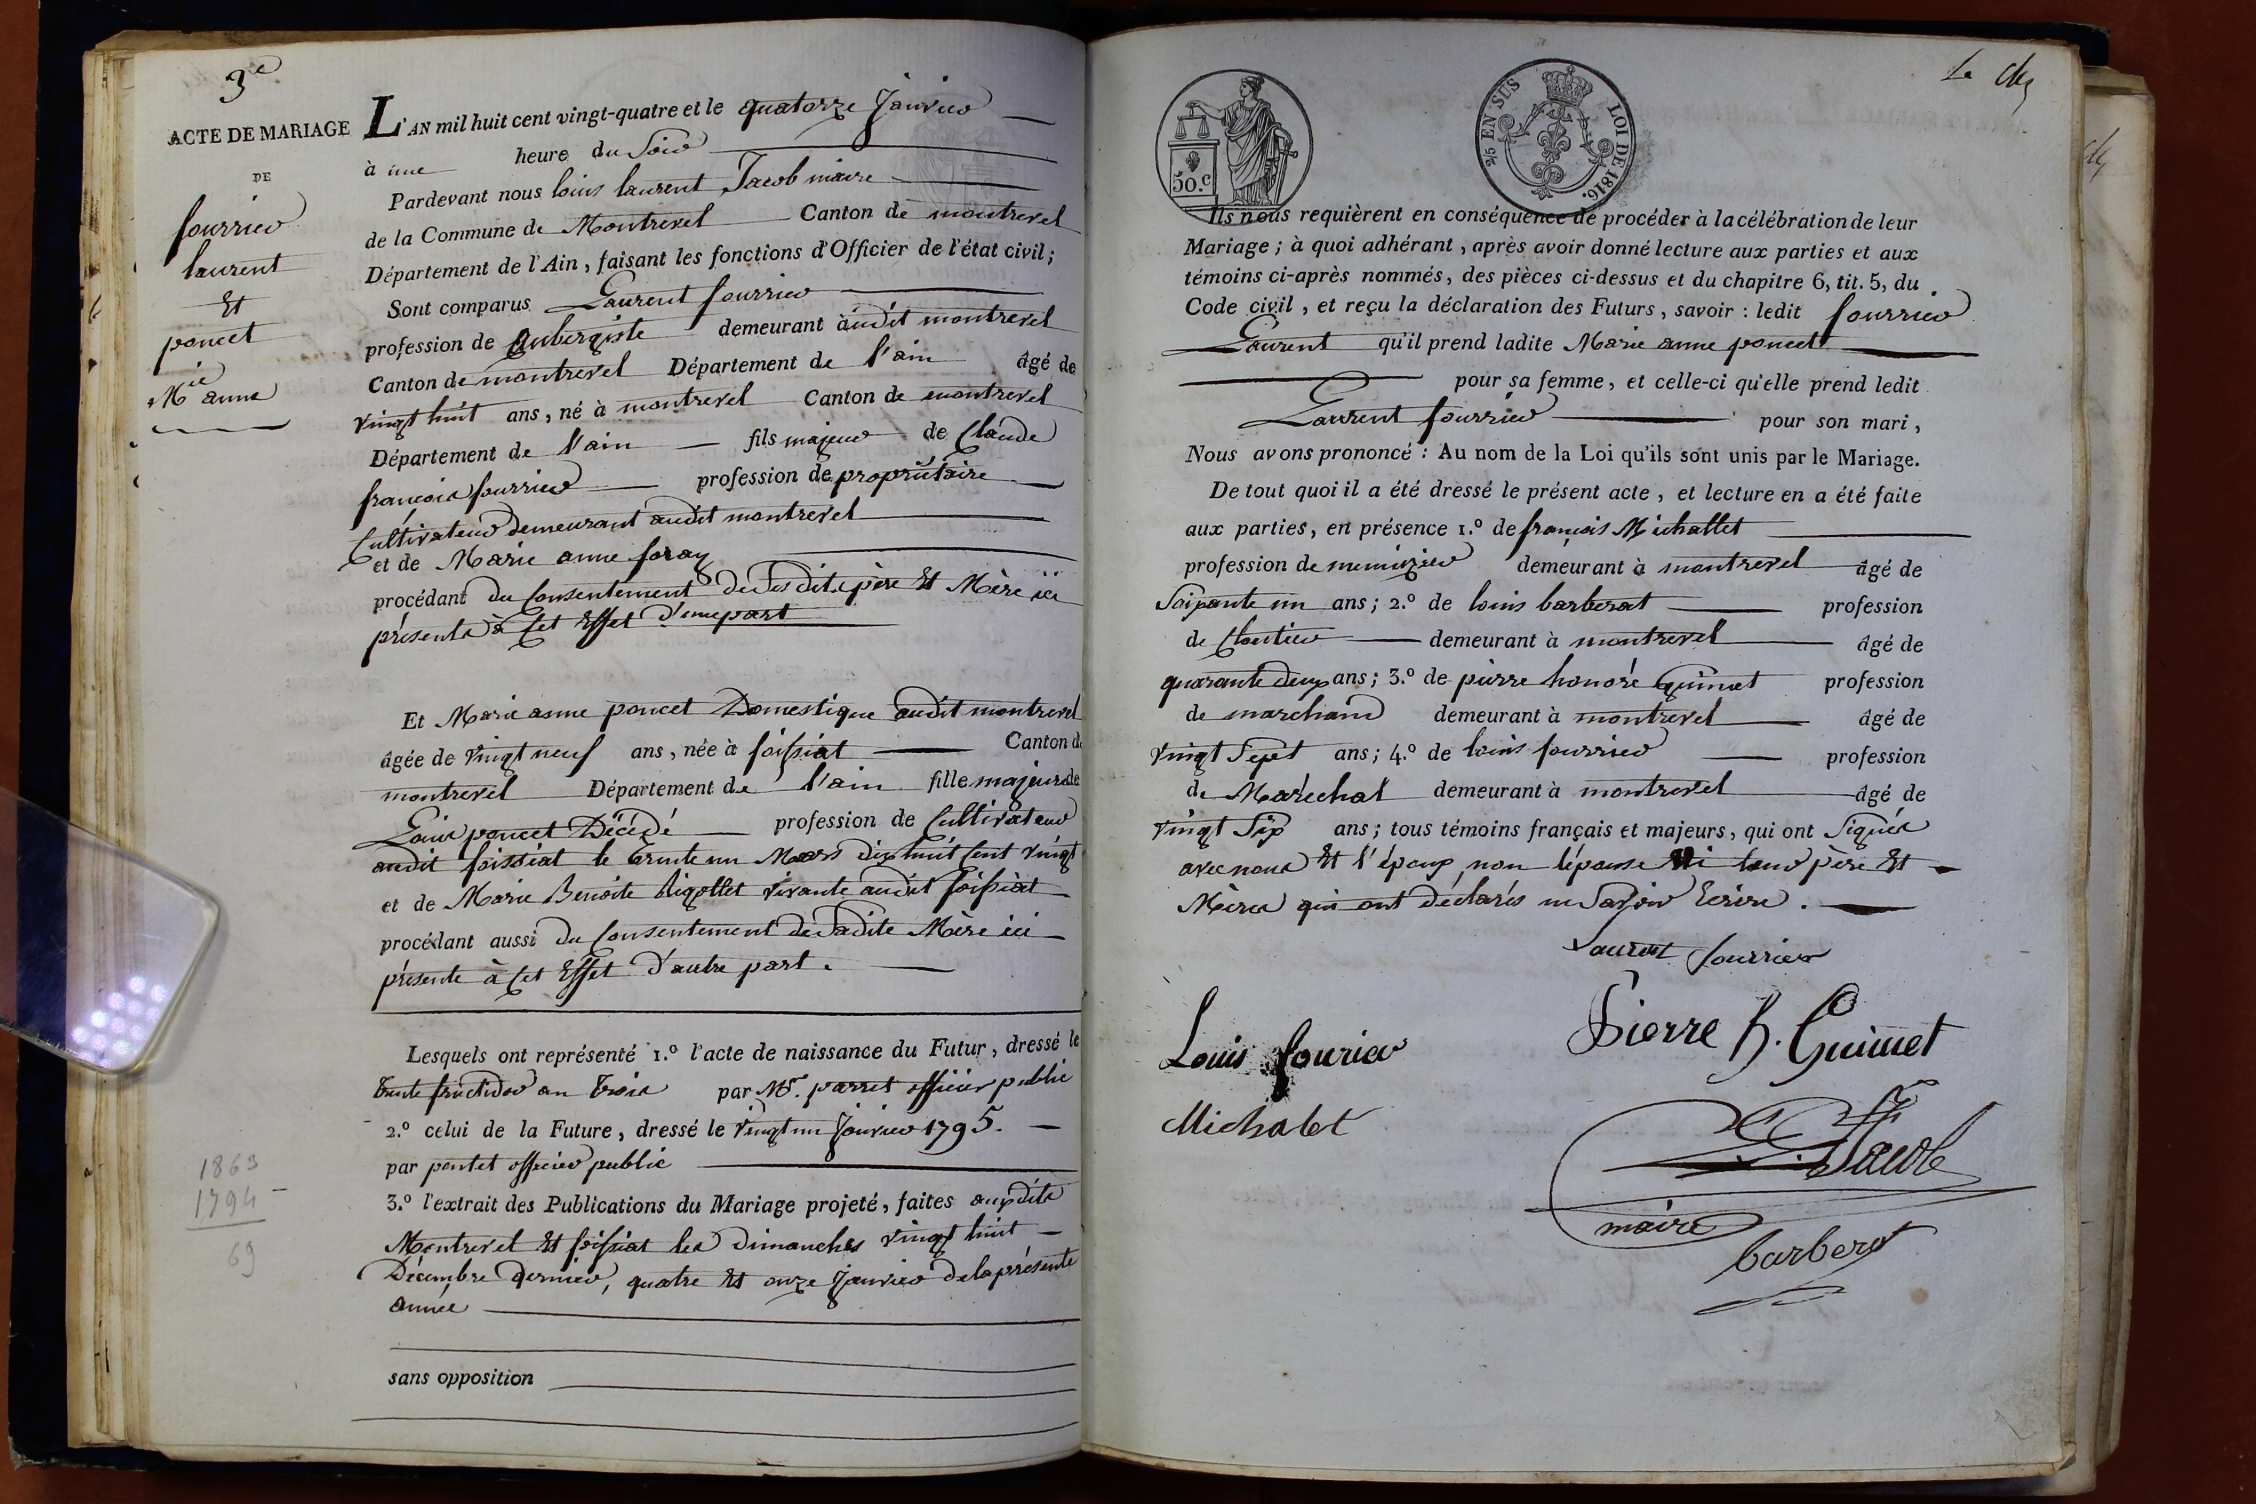 3e
ACTE DE MARIAGE
DE
fourrier
laurent
Et
poncet
Mie anne
L'AN mil huit cent vingt-quatre et le quatorze Janvier
à une heure du Soir
Pardevant nous louis laurent Jacob maire
de la Commune de Montrevel Canton de montrevel
Département de l'Ain, faisant les fonctions d'Officier de l'état civil;
Sont comparus Laurent fourrier
profession de aubergiste demeurant audit montrevel
Canton de montrevel Département de l'ain âgé de
vingt huit ans, né à montrevel Canton de montrevel
Département de l'ain fils majeur de Claude
françois fourrier profession de propriétaire
Cultivateur demeurant audit montrevel
et de Marie anne foray
procédant du Consentement de Ses dits père Et Mère ici
présents à Cet Effet d'une part
Et Marie anne poncet Domestique audit montrevel
âgée de vingt neuf ans, née à foissiat Canton de
montrevel Département de l'ain fille majeure de
Louis poncet Décédé profession de Cultivateur
audit foissiat le trente un Mars dix huit Cent vingt
et de Marie Benoite Rigollet vivante audit foissiat
procédant aussi du Consentement de Sadite Mère ici
présente à Cet Effet d'autre part.
Lesquels ont représenté 1.º l'acte de naissance du Futur, dressé le
trente fructidor an trois par Mr. parret officier public
2.º celui de la Future, dressé le vingt un Janvier 1795.
par pontet officier public
3.º l'extrait des Publications du Mariage projeté, faites auxdits
Montrevel Et foissiat les dimanches vingt huit
Décembre dernier, quatre Et onze Janvier de la présente
année
sans opposition
1863
1794
69
50.C
2/5 EN SUS
LOI DE 1816.
Ils nous requièrent en conséquence de procéder à la célébration de leur
Mariage; à quoi adhérant, après avoir donné lecture aux parties et aux
témoins ci-après nommés, des pièces ci-dessus et du chapitre 6, tit. 5, du
Code civil, et reçu la déclaration des Futurs, savoir : ledit fourrier
Laurent qu'il prend ladite Marie anne poncet
pour sa femme, et celle-ci qu'elle prend ledit
Laurent fourrier pour son mari,
Nous avons prononcé : Au nom de la Loi qu'ils sont unis par le Mariage.
De tout quoi il a été dressé le présent acte, et lecture en a été faite
aux parties, en présence 1.º de françois Michallet
profession de menuizier demeurant à montrevel âgé de
Soixante un ans; 2.º de louis barberat profession
de Cloutier demeurant à montrevel âgé de
quarante deux ans; 3.º de pierre honoré Guimet profession
de marchand demeurant à montrevel âgé de
vingt Sept ans; 4.º de louis fourrier profession
de Maréchal demeurant à montrevel âgé de
vingt Six ans; tous témoins français et majeurs, qui ont Signés
avec nous Et l'époux, non l'épouse Ni leur père Et
Mères qui ont déclarés ne Savoir Ecrire.
Laurent fourrier
Louis fourier
Pierre h. Guimet
Michalet
Jacob
maire
barberat